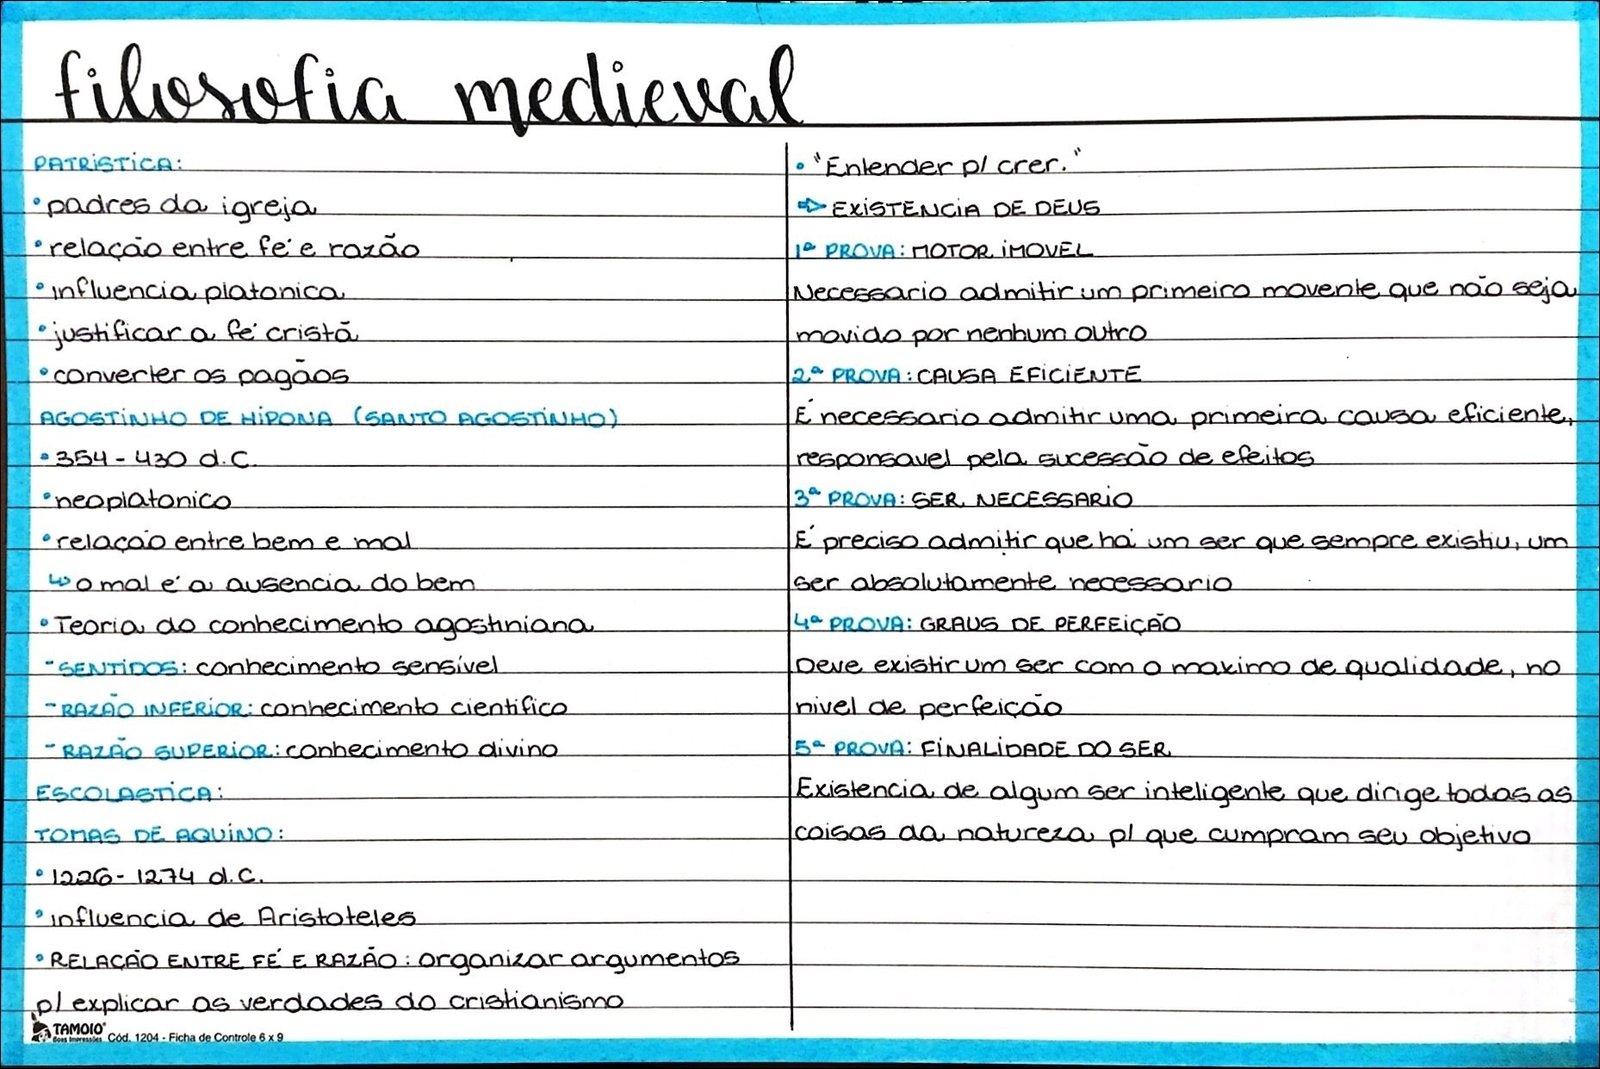 filosofia medieval
PATRÍSTICA:
• padres da igreja
• relação entre fé e razão
• influencia platonica
• justificar a fé cristã
• converter os pagãos
AGOSTINHO DE HIPONA (SANTO AGOSTINHO)
• 354 - 430 d.C.
• neoplatonico
• relação entre bem e mal
↳ o mal é a ausencia do bem
• Teoria do conhecimento agostiniana
- SENTIDOS: conhecimento sensível
- RAZÃO INFERIOR: conhecimento cientifico
- RAZÃO SUPERIOR: conhecimento divino
ESCOLASTICA:
TOMAS DE AQUINO:
• 1226 - 1274 d.C.
• influencia de Aristoteles
• RELAÇÃO ENTRE FÉ E RAZÃO: organizar argumentos
p/ explicar as verdades do cristianismo
TAMOIO®
Boas Impressões Cód. 1204 - Ficha de Controle 6 x 9
• "Entender p/ crer."
⇨ EXISTENCIA DE DEUS
1ª PROVA: MOTOR IMOVEL
Necessario admitir um primeiro movente que não seja
movido por nenhum outro
2ª PROVA: CAUSA EFICIENTE
É necessario admitir uma primeira causa eficiente,
responsavel pela sucessão de efeitos
3ª PROVA: SER NECESSARIO
É preciso admitir que há um ser que sempre existiu, um
ser absolutamente necessario
4ª PROVA: GRAUS DE PERFEIÇÃO
Deve existir um ser com o maximo de qualidade, no
nivel de perfeição
5ª PROVA: FINALIDADE DO SER
Existencia de algum ser inteligente que dirige todas as
coisas da natureza p/ que cumpram seu objetivo